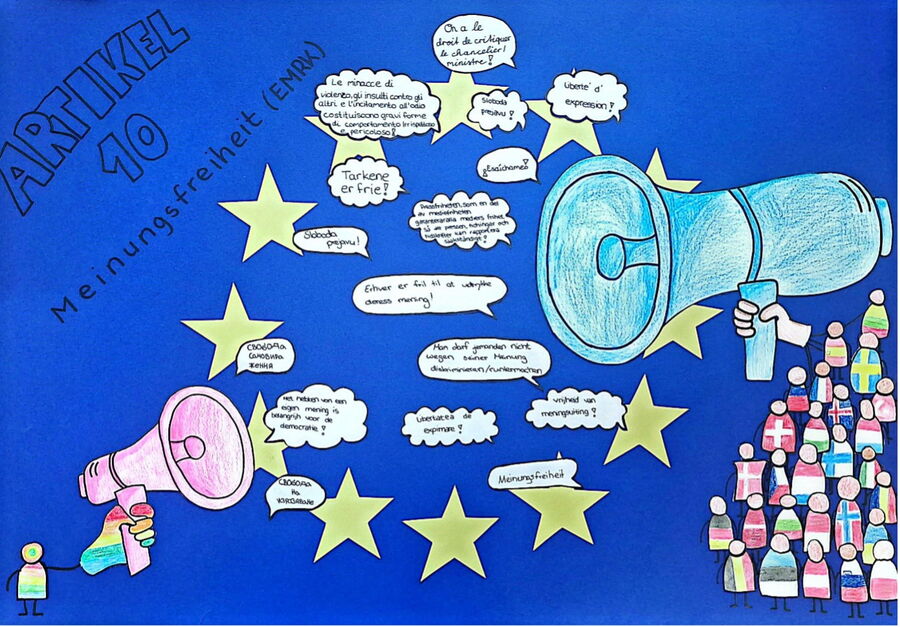 ARTIKEL
10
Meinungsfreiheit (EMRK)
On a le
droit de critiquer
le chancelier/
ministre!
Le minacce di
violenza, gli insulti contro gli
altri e l'incitamento all'odio
costituiscono gravi forme
di comportamento irrispettoso
e pericoloso!
Sloboda
prejavu!
Liberté d'
expression!
Tankene
er frie!
Pressfriheten, som en del
av mediefriheten
garanterar mediers frihet
så att pressen, tidningar och
kan rapportera
självständigt!
Sloboda
prejavu!
Enhver er fril til at udtrykke
deress mening!
Man darf jemanden nicht
wegen seiner Meinung
diskriminieren/runtermachen
СВОБОДА
САМОВИРА
ЖЕННЯ
Het hebben van een
eigen mening is
belangrijk voor de
democratie!
Libertatea de
exprimare!
vrijheid van
meningsuiting!
Meinungsfreiheit
СВОБОДА
НА
ИЗРАЗЯВАНЕ